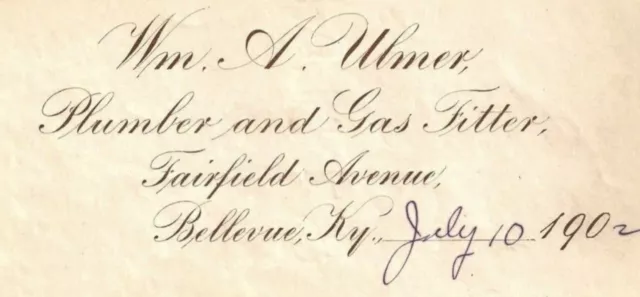 Wm. A. Ulmer,
Plumber and Gas Fitter,
Fairfield Avenue,
Bellevue, Ky., July 10 1902